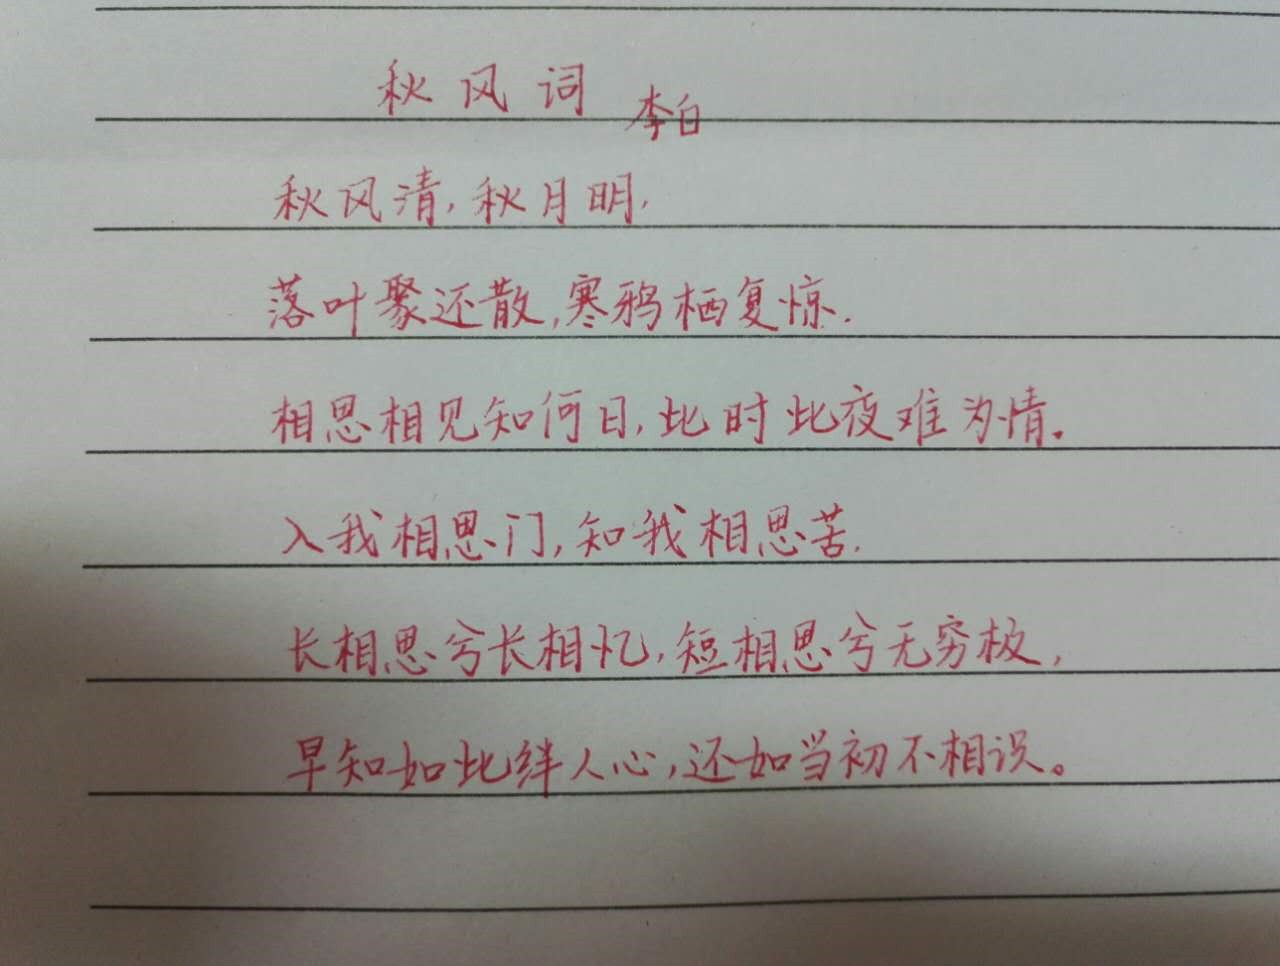 秋风词
李白
秋风清,秋月明,
落叶聚还散,寒鸦栖复惊.
相思相见知何日,此时此夜难为情。
入我相思门,知我相思苦.
长相思兮长相忆,短相思兮无穷极,
早知如此绊人心,还如当初不相识。